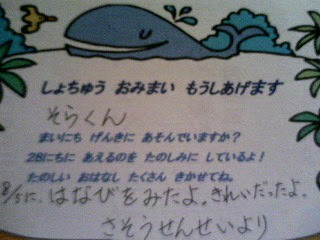 しょちゅう おみまい もうしあげます
そらくん
まいにち げんきに あそんでいますか?
28にちに あえるのを たのしみに しているよ!
たのしい おはなし たくさん きかせてね。
8/5に、はなびをみたよ。きれいだったよ。
さそうせんせいより